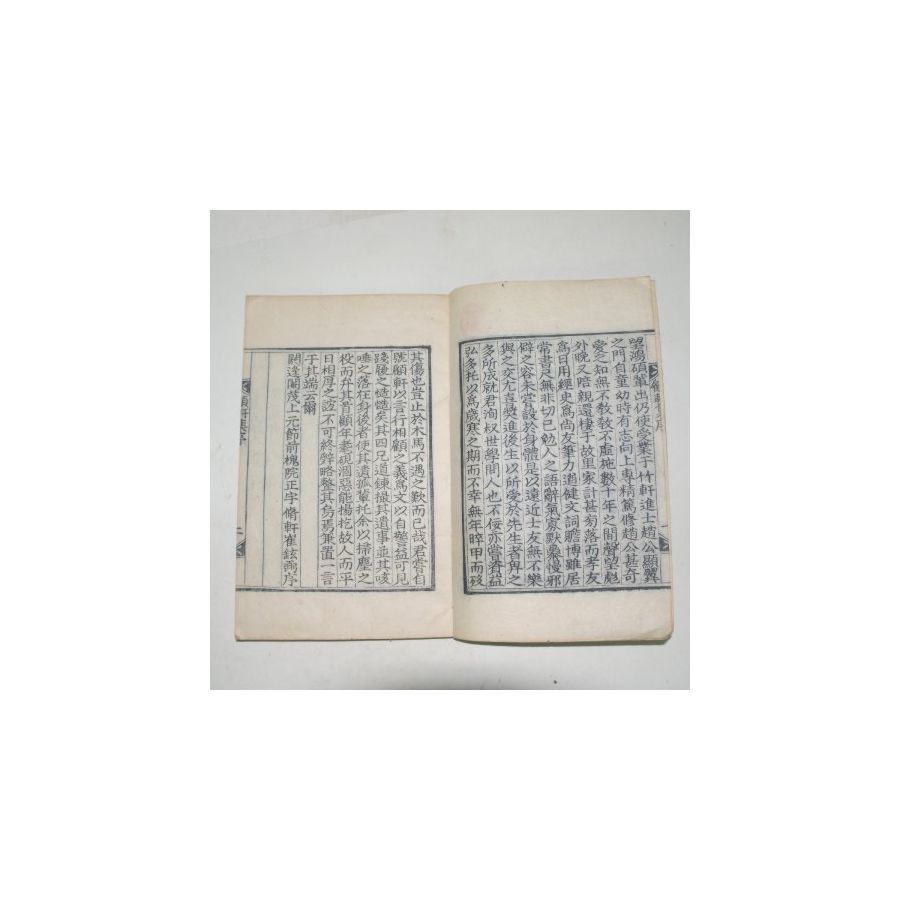 望鴻碩輩出仍使受業于竹軒進士趙公顯翼
之門自童幼時有志向上專精篤修趙公甚奇
愛之知無不敎敎不虛施數十年之間聲望彪
外晩又喑親還棲于故里家計甚匈落而孝友
爲日用經史爲尙友筆力遒健文詞贍博雖居
常書尺無非切己勉人之語辭氣寡默麤慢邪
僻之容未嘗設於身體是以遠近士友無不樂
與之交尤喜奬進後生以所受於先生者畀之
多所成就君洵叔世學間人也不佞亦嘗資益
弘多托以爲歲寒之期而不幸無年晬甲而歿
其傷也豈止於木馬不遇之歎而已哉君嘗自
號顧軒以言行相顧之義爲文以自警益可見
踐履之慥慥矣其四兄道鍊撮其遺事並其咳
唾之落在身後者使其遺孤輩托余以掃塵之
役而弁其首顧年老硯涸惡能揚扢故人而平
日相厚之誼不可終辭略整其烏焉兼置一言
于其端云爾
閼逢閹茂上元節前槐院正字脩軒崔鉉弼序
顧軒集序